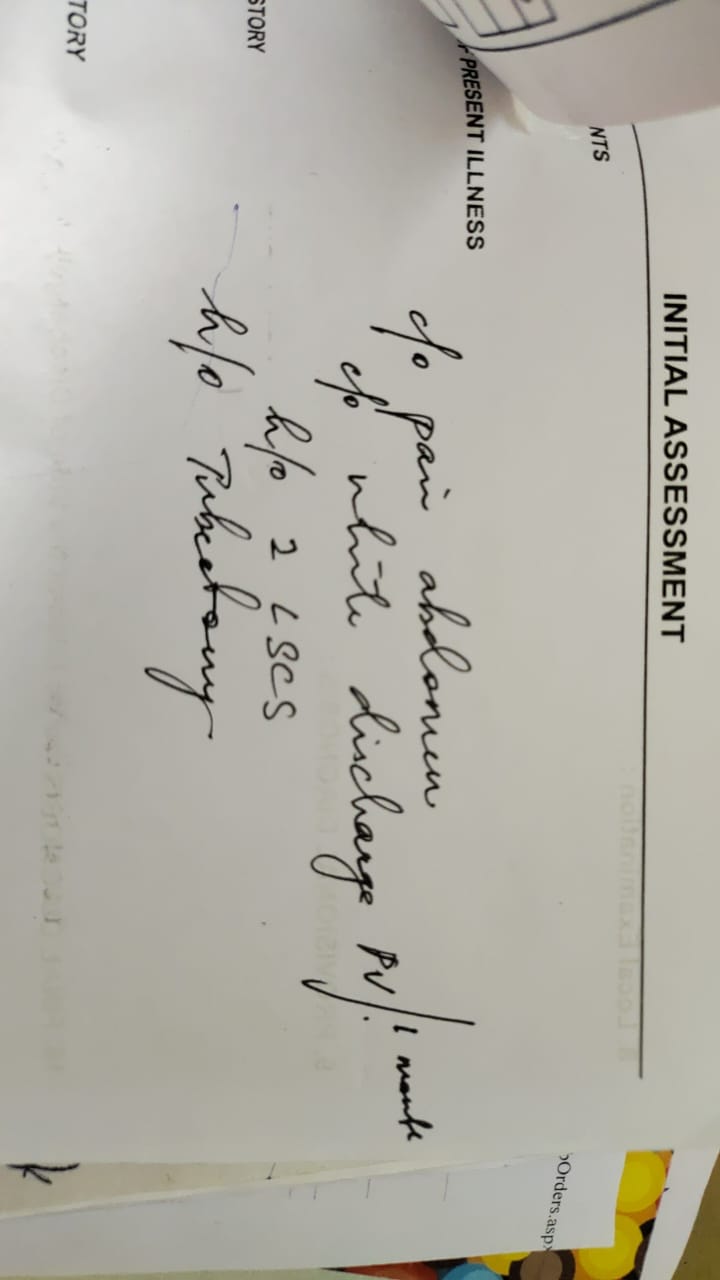 INITIAL ASSESSMENT
NTS
PRESENT ILLNESS
c/o pain abdomen
c/o white discharge PV/1 month
h/o 2 LSCS
STORY
h/o Tubectomy
TORY
Orders.aspx